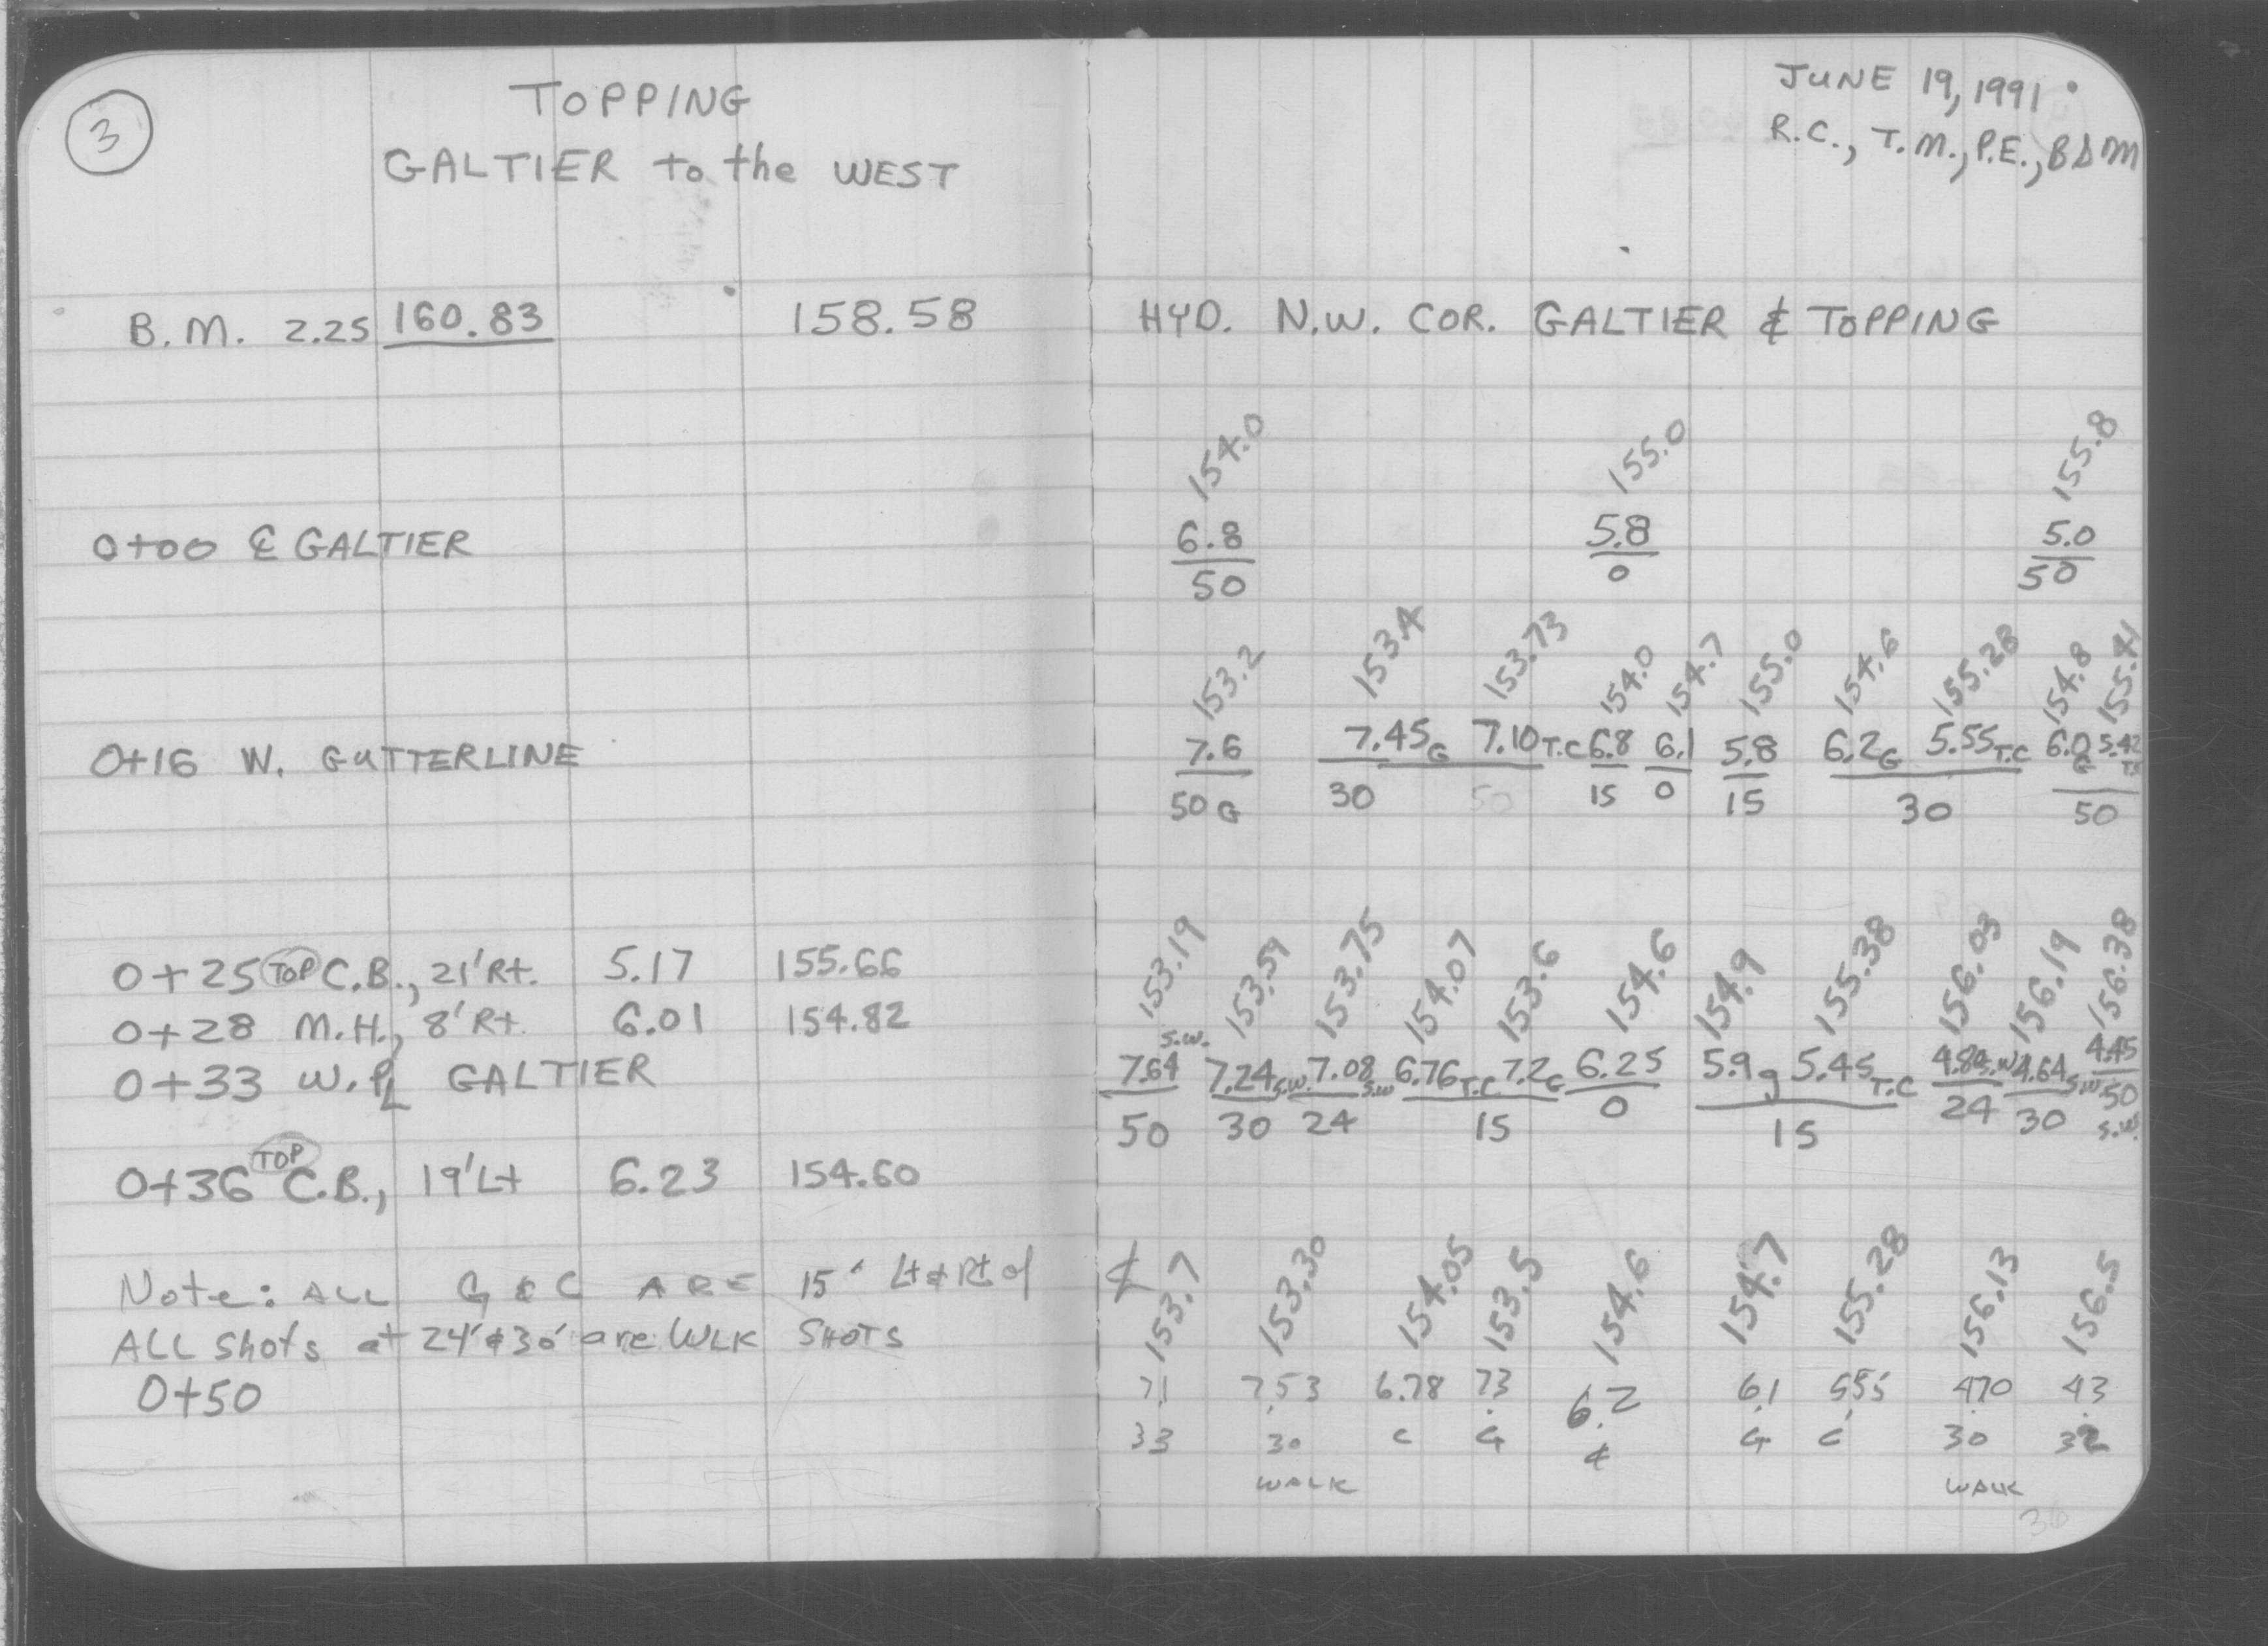 3
TOPPING
GALTIER to the WEST
B.M. 2.25 160.83 158.58
0+00 ℄ GALTIER
0+16 W. GUTTERLINE
0+25 TOP C.B., 21' Rt. 5.17 155.66
0+28 M.H., 8' Rt. 6.01 154.82
0+33 W. PL GALTIER
0+36 TOP C.B., 19' Lt 6.23 154.60
Note: ALL G & C ARE 15' Lt & Rt of ℄
ALL Shots at 24' & 30' are WLK SHOTS
0+50
JUNE 19, 1991
R.C., T.M., P.E., B∆M
HYD. N.W. COR. GALTIER & TOPPING
154.0 155.0 155.8
6.8 5.8 5.0
50 0 50
153.2 153.4 153.73 154.0 154.7 155.0 154.6 155.28 154.8 155.41
7.6 7.45 G 7.10 T.C 6.8 6.1 5.8 6.2 G 5.55 T.C 6.0 G 5.42 TC
50 G 30 50 15 0 15 30 50
153.19 153.59 153.75 154.07 153.6 154.6 154.9 155.38 156.03 156.19 156.38
7.64 S.W. 7.24 S.W. 7.08 S.W 6.76 T.C 7.2 G 6.25 5.9 g 5.45 T.C 4.80 S.W 4.64 S.W 4.45
50 30 24 15 0 15 24 30 50 S.W.
153.7 153.30 154.05 153.5 154.6 154.7 155.28 156.13 156.5
7.1 7.53 6.78 7.3 6.2 6.1 5.55 4.70 4.3
33 30 C G ℄ G C 30 32
WALK WALK
36